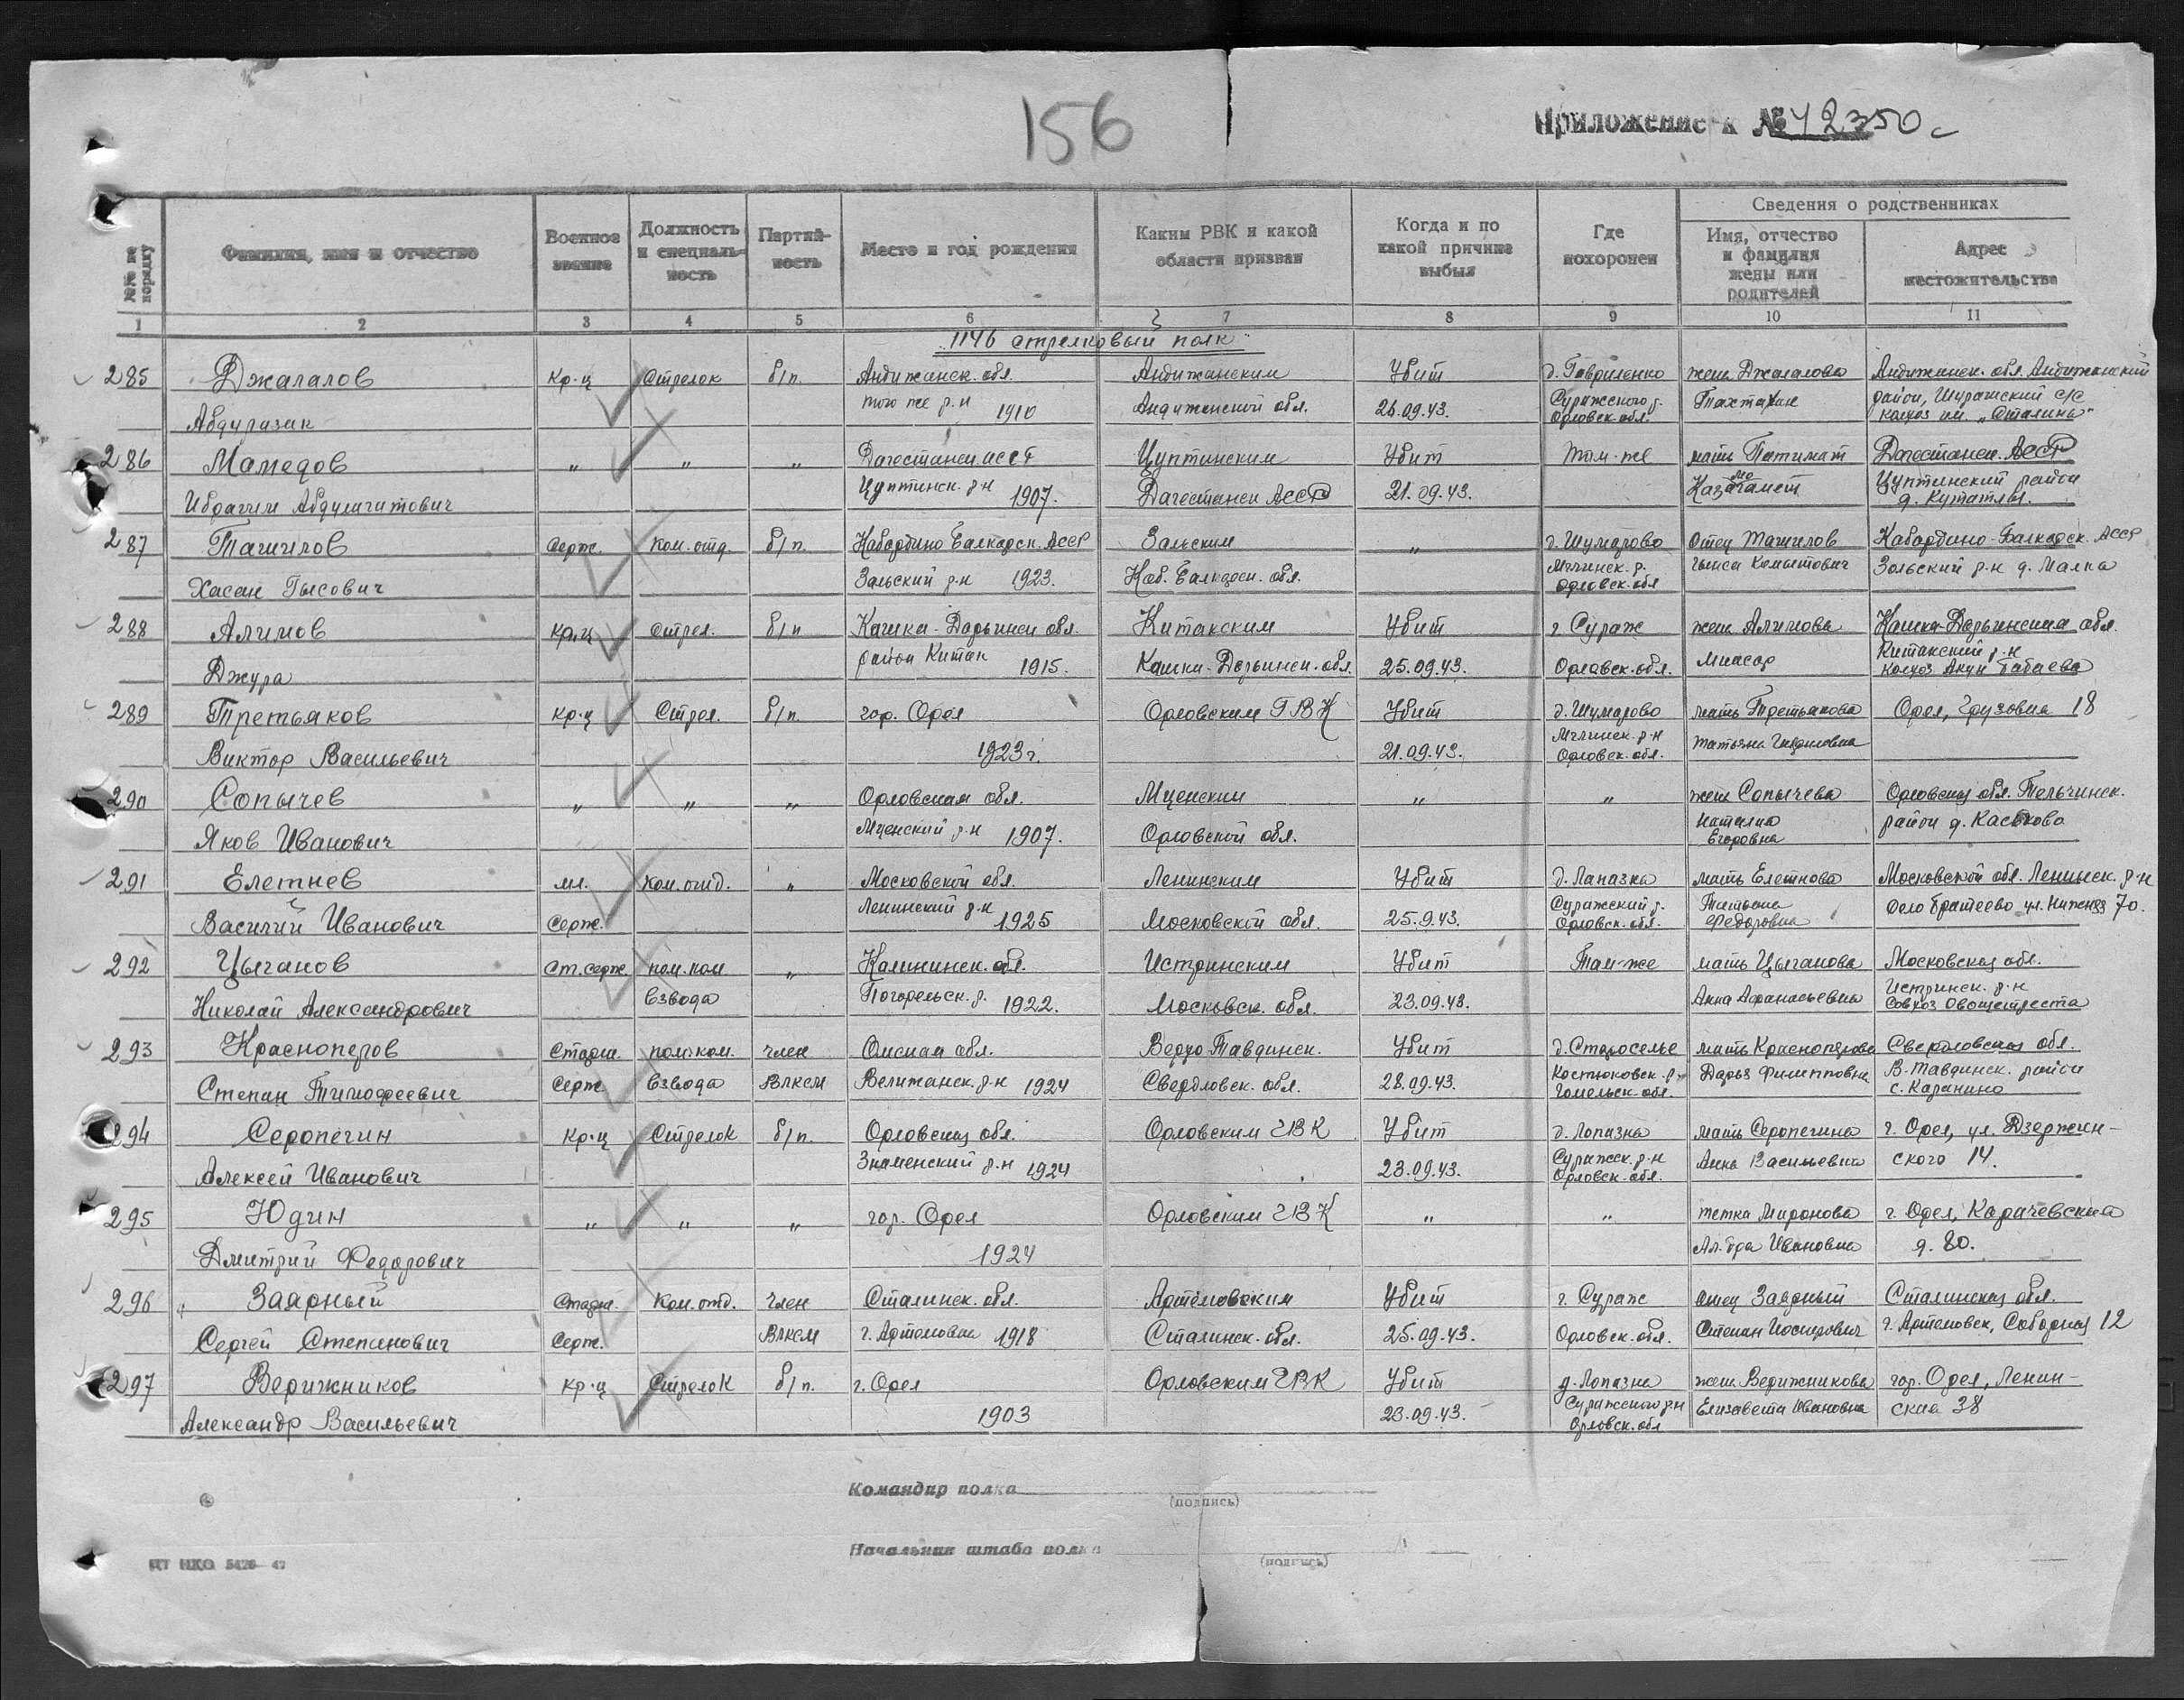 156
Приложение к № 42350с
№№ по порядку
Фамилия, имя и отчество
Военное звание
Должность и специальность
Партийность
Место и год рождения
Каким РВК и какой области призван
Когда и по какой причине выбыл
Где похоронен
Сведения о родственниках
Имя, отчество и фамилия жены или родителей
Адрес местожительства
1 2 3 4 5 6 7 8 9 10 11
1146 стрелковый полк
285 Джалалов Кр-ц Стрелок б/п. Андижанск. обл. Андижанским Убит д. Гавриленко жена Джалалова Андижанск. обл. Андижанский
Абдулазик того же р-н 1910 Андижанской обл. 26.09.43. Суражского р. Орловск. обл. Тахтахан район, Шурашский с/с колхоз им. „Сталина"
286 Мамедов „ „ „ Дагестанск АССР Цунтинским Убит Там-же мать Патимат Дагестанск. АССР
Ибрагим Абдулагитович Цунтинск. р-н 1907. Дагестанск АССР 21.09.43. Цунтинский район
287 Ташилов Серж. Ком. отд. б/п. Кабардино Балкарск. АССР Зальским „ д. Шумарово Отец Ташилов Кабардино-Балкарск. АССР
Хасан Гысович Зальский р-н 1923. Каб. Балкарск. обл. Мглинск. р. Орловск. обл Зольский р-н д. Малка
288 Алимов кр-ц стрел. б/п Кашка-Дарьинск обл. Китакским Убит г. Сураж жена Алимова Кашка-Дарьинская обл.
Джура район Китак 1915. Кашка-Дарьинск. обл. 25.09.43. Орловск. обл. Миасар Китакский р-н колхоз Акун Бабаева
289 Третьяков Кр-ц Стрел. б/п. гор. Орел Орловским ГВК Убит д. Шумарово мать Третьякова Орел, Грузовая 18
Виктор Васильевич 1923г. 21.09.43. Мглинск. р-н Орловск. обл. Татьяна
290 Сопычев „ „ „ Орловская обл. Мценским „ „ жена Сопычева Орловская обл. Тельчинск.
Яков Иванович Мценский р-н 1907. Орловской обл. Наталия Егоровна район д. Каськово
291 Елетнев мл. Ком. отд. „ Московской обл. Ленинским Убит д. Лапазна мать Елетнова Московской обл. Ленинск. р-н
Василий Иванович Серж. Ленинский р-н 1925 Московской обл. 25.9.43. Суражский р. Орловск. обл. Татьяна Федоровна село Братеево ул. Нижняя 70.
292 Цыганов Ст. серж. пом. ком „ Калининск. обл. Истринским Убит Там-же мать Цыганова Московская обл.
Николай Александрович взвода Погорельск. р. 1922. Московск. обл. 23.09.43. Анна Афанасьевна Истринск. р-н совхоз Овощетреста
293 Красноперов Старш. пом. ком. член Омская обл. Верхо-Тавдинск. Убит д. Староселье мать Красноперова Свердловская обл.
Степан Тимофеевич Серж. взвода ВЛКСМ Велижанск. р-н 1924 Свердловск. обл. 28.09.43. Костюковск. р-н Гомельск. обл. Дарья Филипповна В-Тавдинск. район с. Каранино
294 Серопегин Кр-ц Стрелок б/п. Орловская обл. Орловским ГВК Убит д. Лопазна мать Серопегина г. Орел, ул. Дзержин-
Алексей Иванович Знаменский р-н 1924 23.09.43. Суражск. р-н Орловск. обл. Анна Васильевна ского 14.
295 Юдин „ „ „ гор. Орел Орловским ГВК „ „ тетка Миронова г. Орел, Карачевская
Дмитрий Федорович 1924 Ал-дра Ивановна д. 80.
296 Заярный Старш. Ком. отд. Член Сталинск. обл. Артёмовским Убит г. Сураж отец Заярный Сталинская обл.
Сергей Степанович Серж. ВЛКСМ г. Артемовка 1918 Сталинск. обл. 25.09.43. Орловск. обл. Степан Иосифович г. Артемовск, Соборная 12
297 Верижников кр-ц Стрелок б/п. г. Орел Орловским ГВК Убит д. Лопазна жена Верижникова гор. Орел, Ленин-
Александр Васильевич 1903 23.09.43. Суражского р-н Орловск. обл Елизавета Ивановна ская 38
Командир полка
(подпись)
Начальник штаба полка
(подпись)
ЦТ НКО